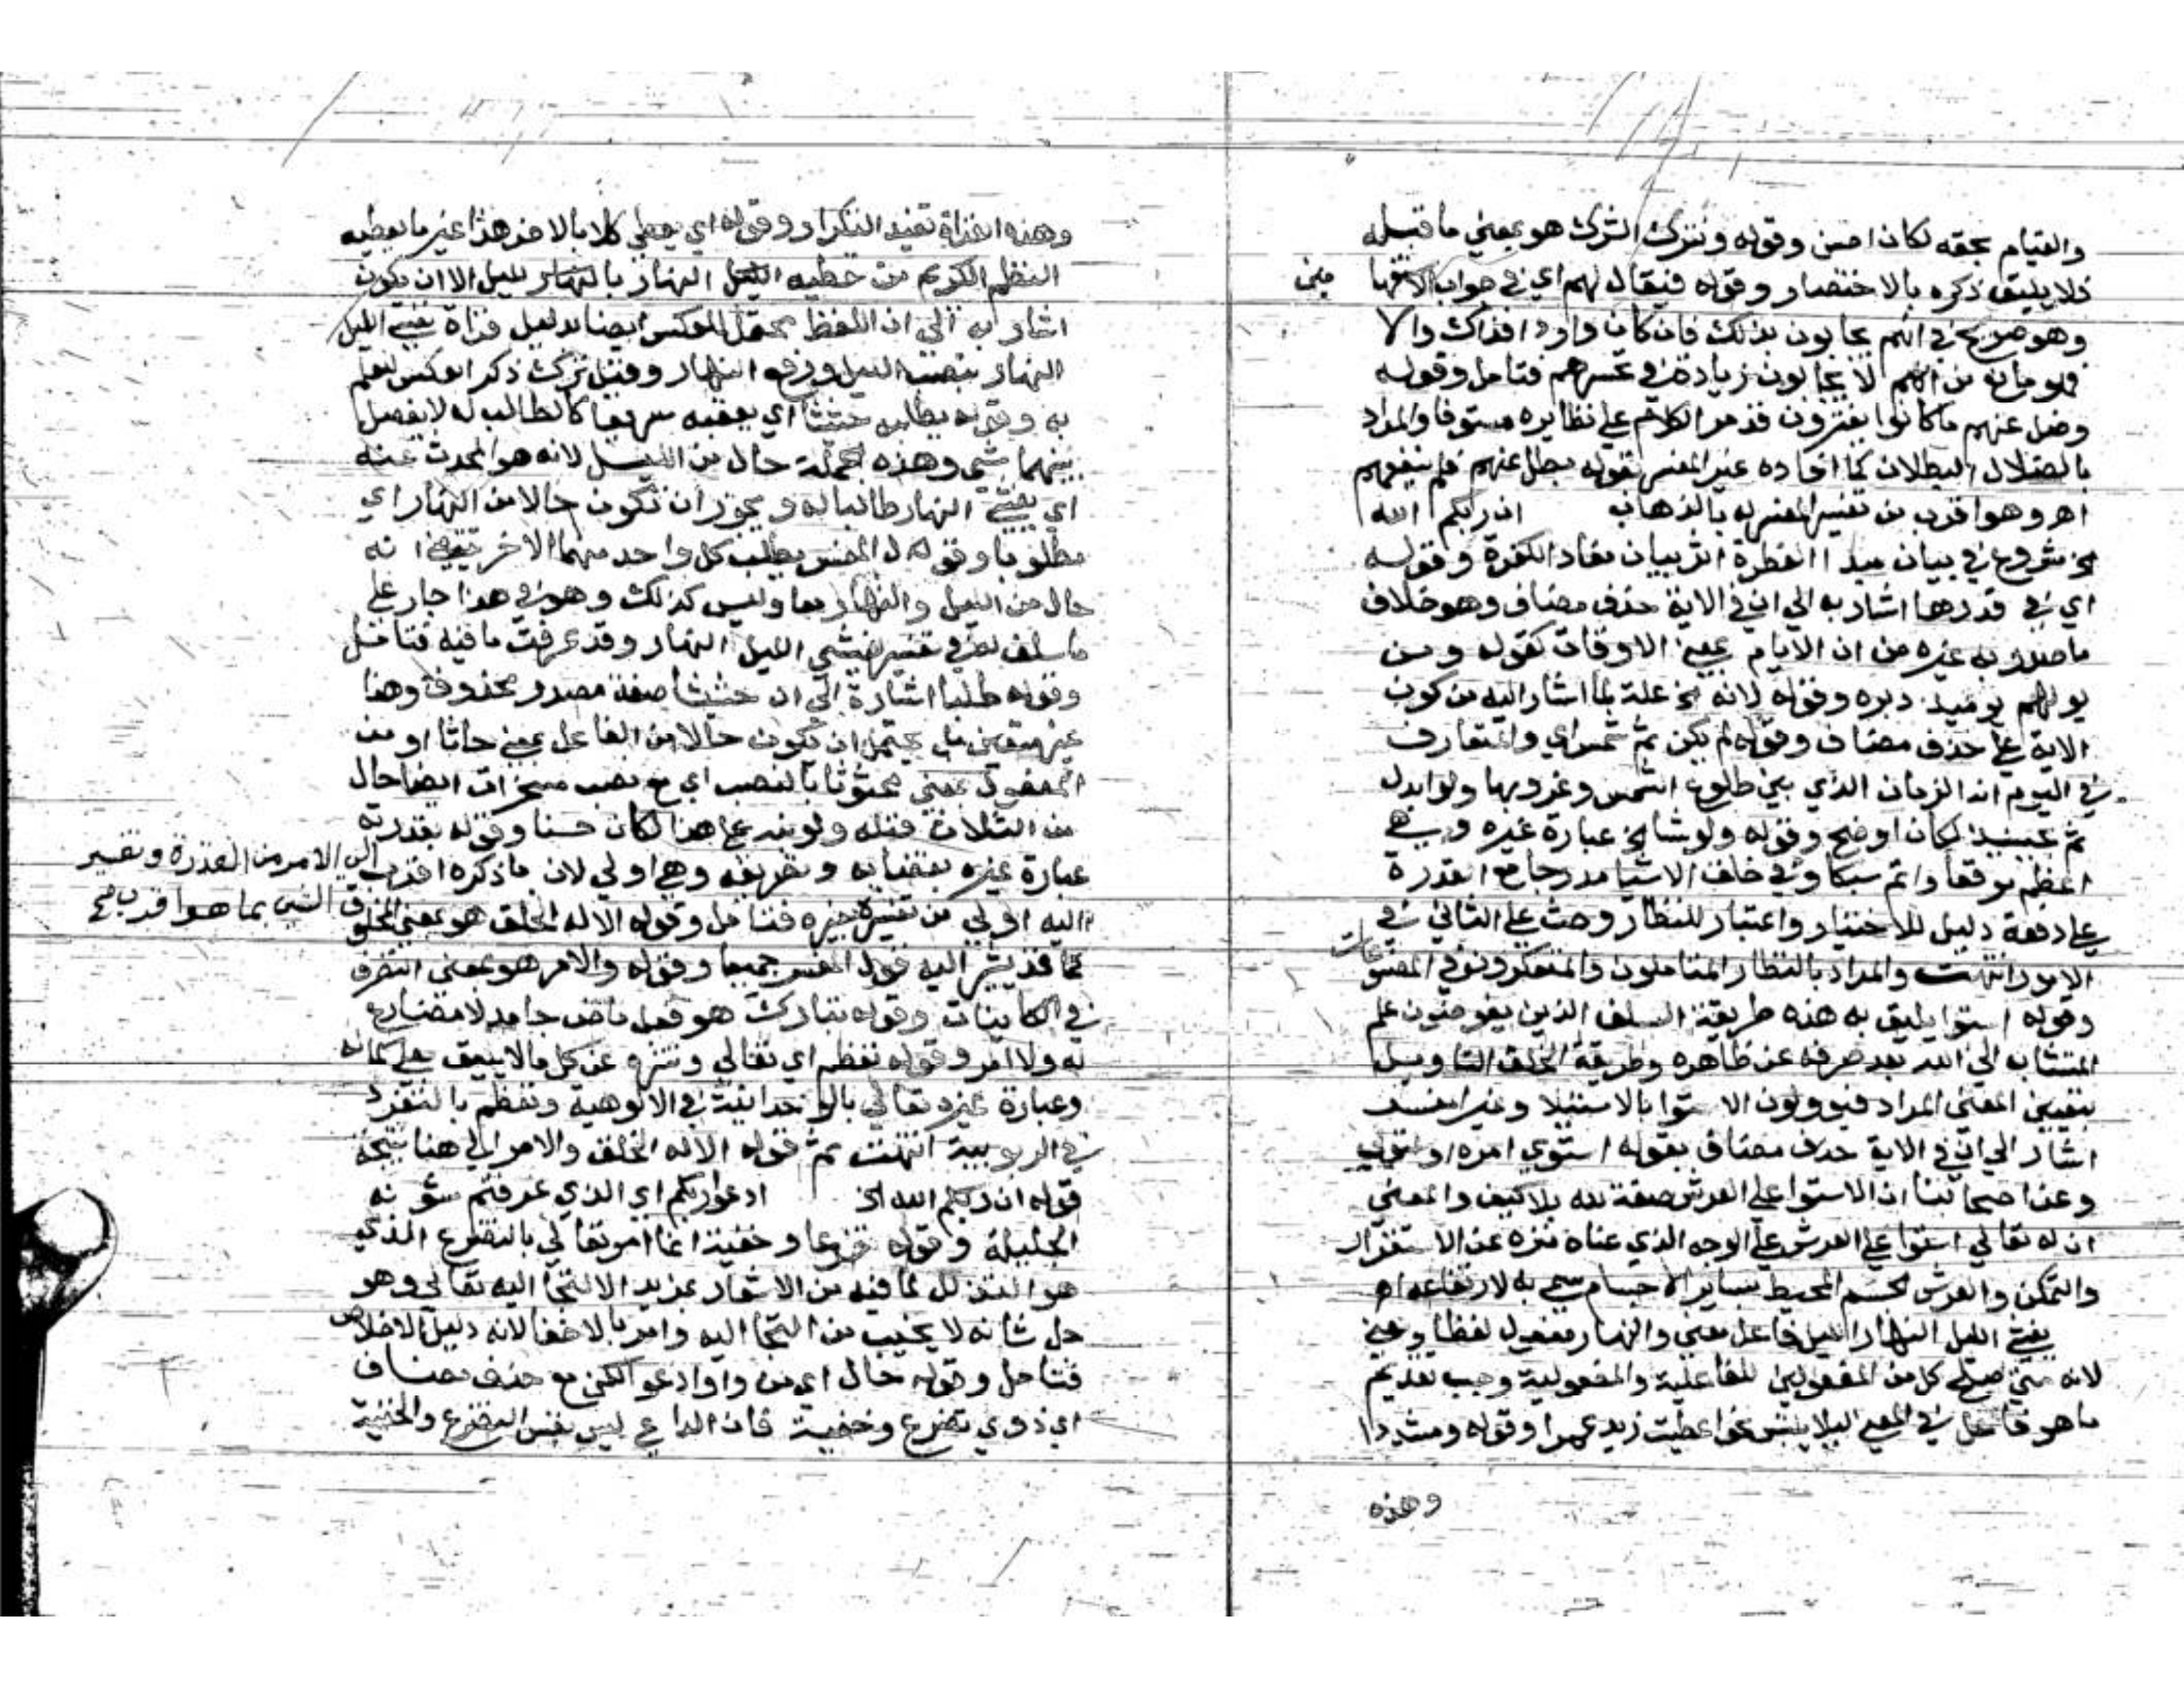 والقيام بحقه لكان احسن وقوله ونترك الشرك هو بمعني ما قبله
فلا يليق ذكره بالاختصار وقوله فيقال لهم اي في جواب الاستفها
مين
وهو صريح في انهم يجابون بذلك فان كان واردا فذاك والا
فلا مانع من انهم لا يجابون زيادة في تحسرهم فتامل وقوله
وضل عنهم ما كانوا يفترون قد مر الكلام على نظايره مستوفا والمراد
بالضلال البطلان كما افاده غير المفسر بقوله بطل عنهم فلم ينفعهم
اهـ وهو اقرب من تفسير المفسر له بالذهاب ان ربكم الله
الخ شروع في بيان مبدا الفطرة اثر بيان معاد الكفرة وقوله
اي في قدرها اشار به الي ان في الاية حذف مضاف وهو خلاف
ما صدر به غيره من ان الايام بمعني الاوقات كقوله ومن
يولهم يوميذ دبره وقوله لانه الخ علة لما اشار اليه من كون
الاية على حذف مضاف وقوله لم يكن ثم شمس اي والمتعارف
في اليوم انه الزمان الذي بين طلوع الشمس وغروبها ولو ابدل
ثم بحينيذ لكان اوضح وقوله ولو شا الخ عبارة غيره وهي
اعظم موقعا واتم سبكا وفي خلق الاشيا مدرجا مع القدرة
على دفعة دليل للاختيار واعتبار للنظار وحث على التاني في
الامور انتهت والمراد بالنظار المتاملون والمتفكرون في المصنوعات
وقوله استوا يليق به هذه طريقة السلف الذين يفوضون علم
المتشابه الي الله بعد صرفه عن ظاهره وطريقة الخلف التاويل
بتعيين المعني المراد فيوولون الاستوا بالاستيلا وغير المفسر
اشار الي ان في الاية حذف مضاف بقوله استوي امره او استولي
وعن اصحابنا ان الاستوا على العرش صفة لله بلا كيف والمعني
ان له تعالي استوا على العرش على الوجه الذي عناه منزه عن الاستقرار
والتمكن والعرش الجسم المحيط بساير الاجسام سمي به لارتفاعه اهـ
يغشي الليل النهار الليل فاعل معني والنهار مفعول لفظا ومعني
لانه متي صلح كل من المفعولين للفاعلية والمفعولية وجب تقديم
ما هو فاعل في المعني ليلا يلتبس نحو اعطيت زيد عمرا وقوله ومشددا
وهذه
وهذه القراة تفيد التكرار وقوله اي يغطي كلا بالاخر هذا غير ما يعطيه
النظم الكريم من تغطيه الليل النهار بالنهار لليل الا ان يكون
اشار به الي ان اللفظ محتمل للعكس ايضا بدليل قراة يغشي الليل
النهار بنصب الليل ورفع النهار وقيل ترك ذكر العكس للعلم
به وقوله يطلبه حثيثا اي يعقبه سريعا كالطالب له لا يفصل
بينهما شي وهذه الجملة حال من الليل لانه هو المحدث عنه
اي يغشي النهار طالبا له ويجوز ان تكون حالا من النهار اي
مطلوبا وقول المفسر يطلب كل واحد منهما الاخر يقتضي انه
حال من الليل والنهار معا وليس كذلك وهو في هذا جار على
ما سلف له في تفسير يغشي الليل النهار وقد عرفت ما فيه فتامل
وقوله طلبا اشارة الي ان حثيثا صفة مصدر محذوف وهذا
غير متعين بل يحتمل ان تكون حالا من الفاعل بمعني حاثا او من
المفعول بمعني محثوثا بالنصب اي مع نصب مسخرات ايضا حال
من الثلاثة قبله ولو نبه على هذا لكان حسنا وقوله بقدرته
عبارة غيره بقضايه وتصريفه وهي اولي لان ما ذكره اقرب الي الامر من القدرة وتفسير
الشي بما هو اقرب
اليه اولي من تفسيره بغيره فتامل وقوله الا له الخلق هو بمعني المخلوق
كما قد يشير اليه قول المفسر جميعا وقوله والامر هو بمعني التصرف
في الكاينات وقوله تبارك هو فعل ماض جامد لا مضارع
له ولا امر وقوله تعظم اي تعالي وتنزه عن كل ما لا يليق بعلي كماله
وعبارة غيره تعالي بالوحدانية في الالوهية وتعظم بالتفرد
في الربوبية انتهت ثم قوله الا له الخلق والامر الي هنا نتيجة
قوله ان ربكم الله الخ ادعوا ربكم اي الذي عرفتم شونه
الجليلة وقوله تضرعا وخفية انما امر تعالي بالتضرع الذي
هو التذلل لما فيه من الاشعار بمزيد الالتجا اليه تعالي وهو
جل شانه لا يخيب من التجا اليه وامر بالاخفا لانه دليل الاخلاص
فتامل وقوله حال اي من واو ادعوا لكن مع حذف مضاف
اي ذوي تضرع وخفية فان الداعي ليس نفس التضرع والخفية